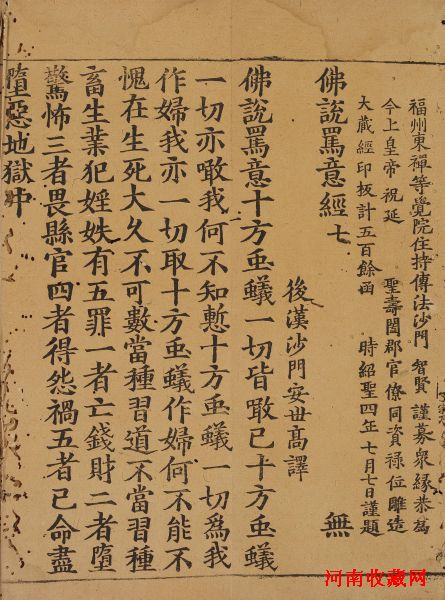 福州東禪等覺院住持傳法沙門 智賢 謹募衆緣恭爲
今上皇帝祝延 聖壽闔郡官僚同資祿位雕造
大藏經印板計五百餘函 時紹聖四年七月七日謹題
佛說罵意經七 無
後漢沙門安世高譯
佛說罵意十方䖝蟻一切皆噉已十方䖝蟻
一切亦噉我何不知慙十方䖝蟻一切爲我
作婦我亦一切取十方䖝蟻作婦何不能不
愧在生死大久不可數當種習道不當習種
畜生業犯婬妷有五罪一者亡錢財二者墮
驚怖三者畏縣官四者得怨禍五者已命盡
墮惡地獄中
河南收藏网